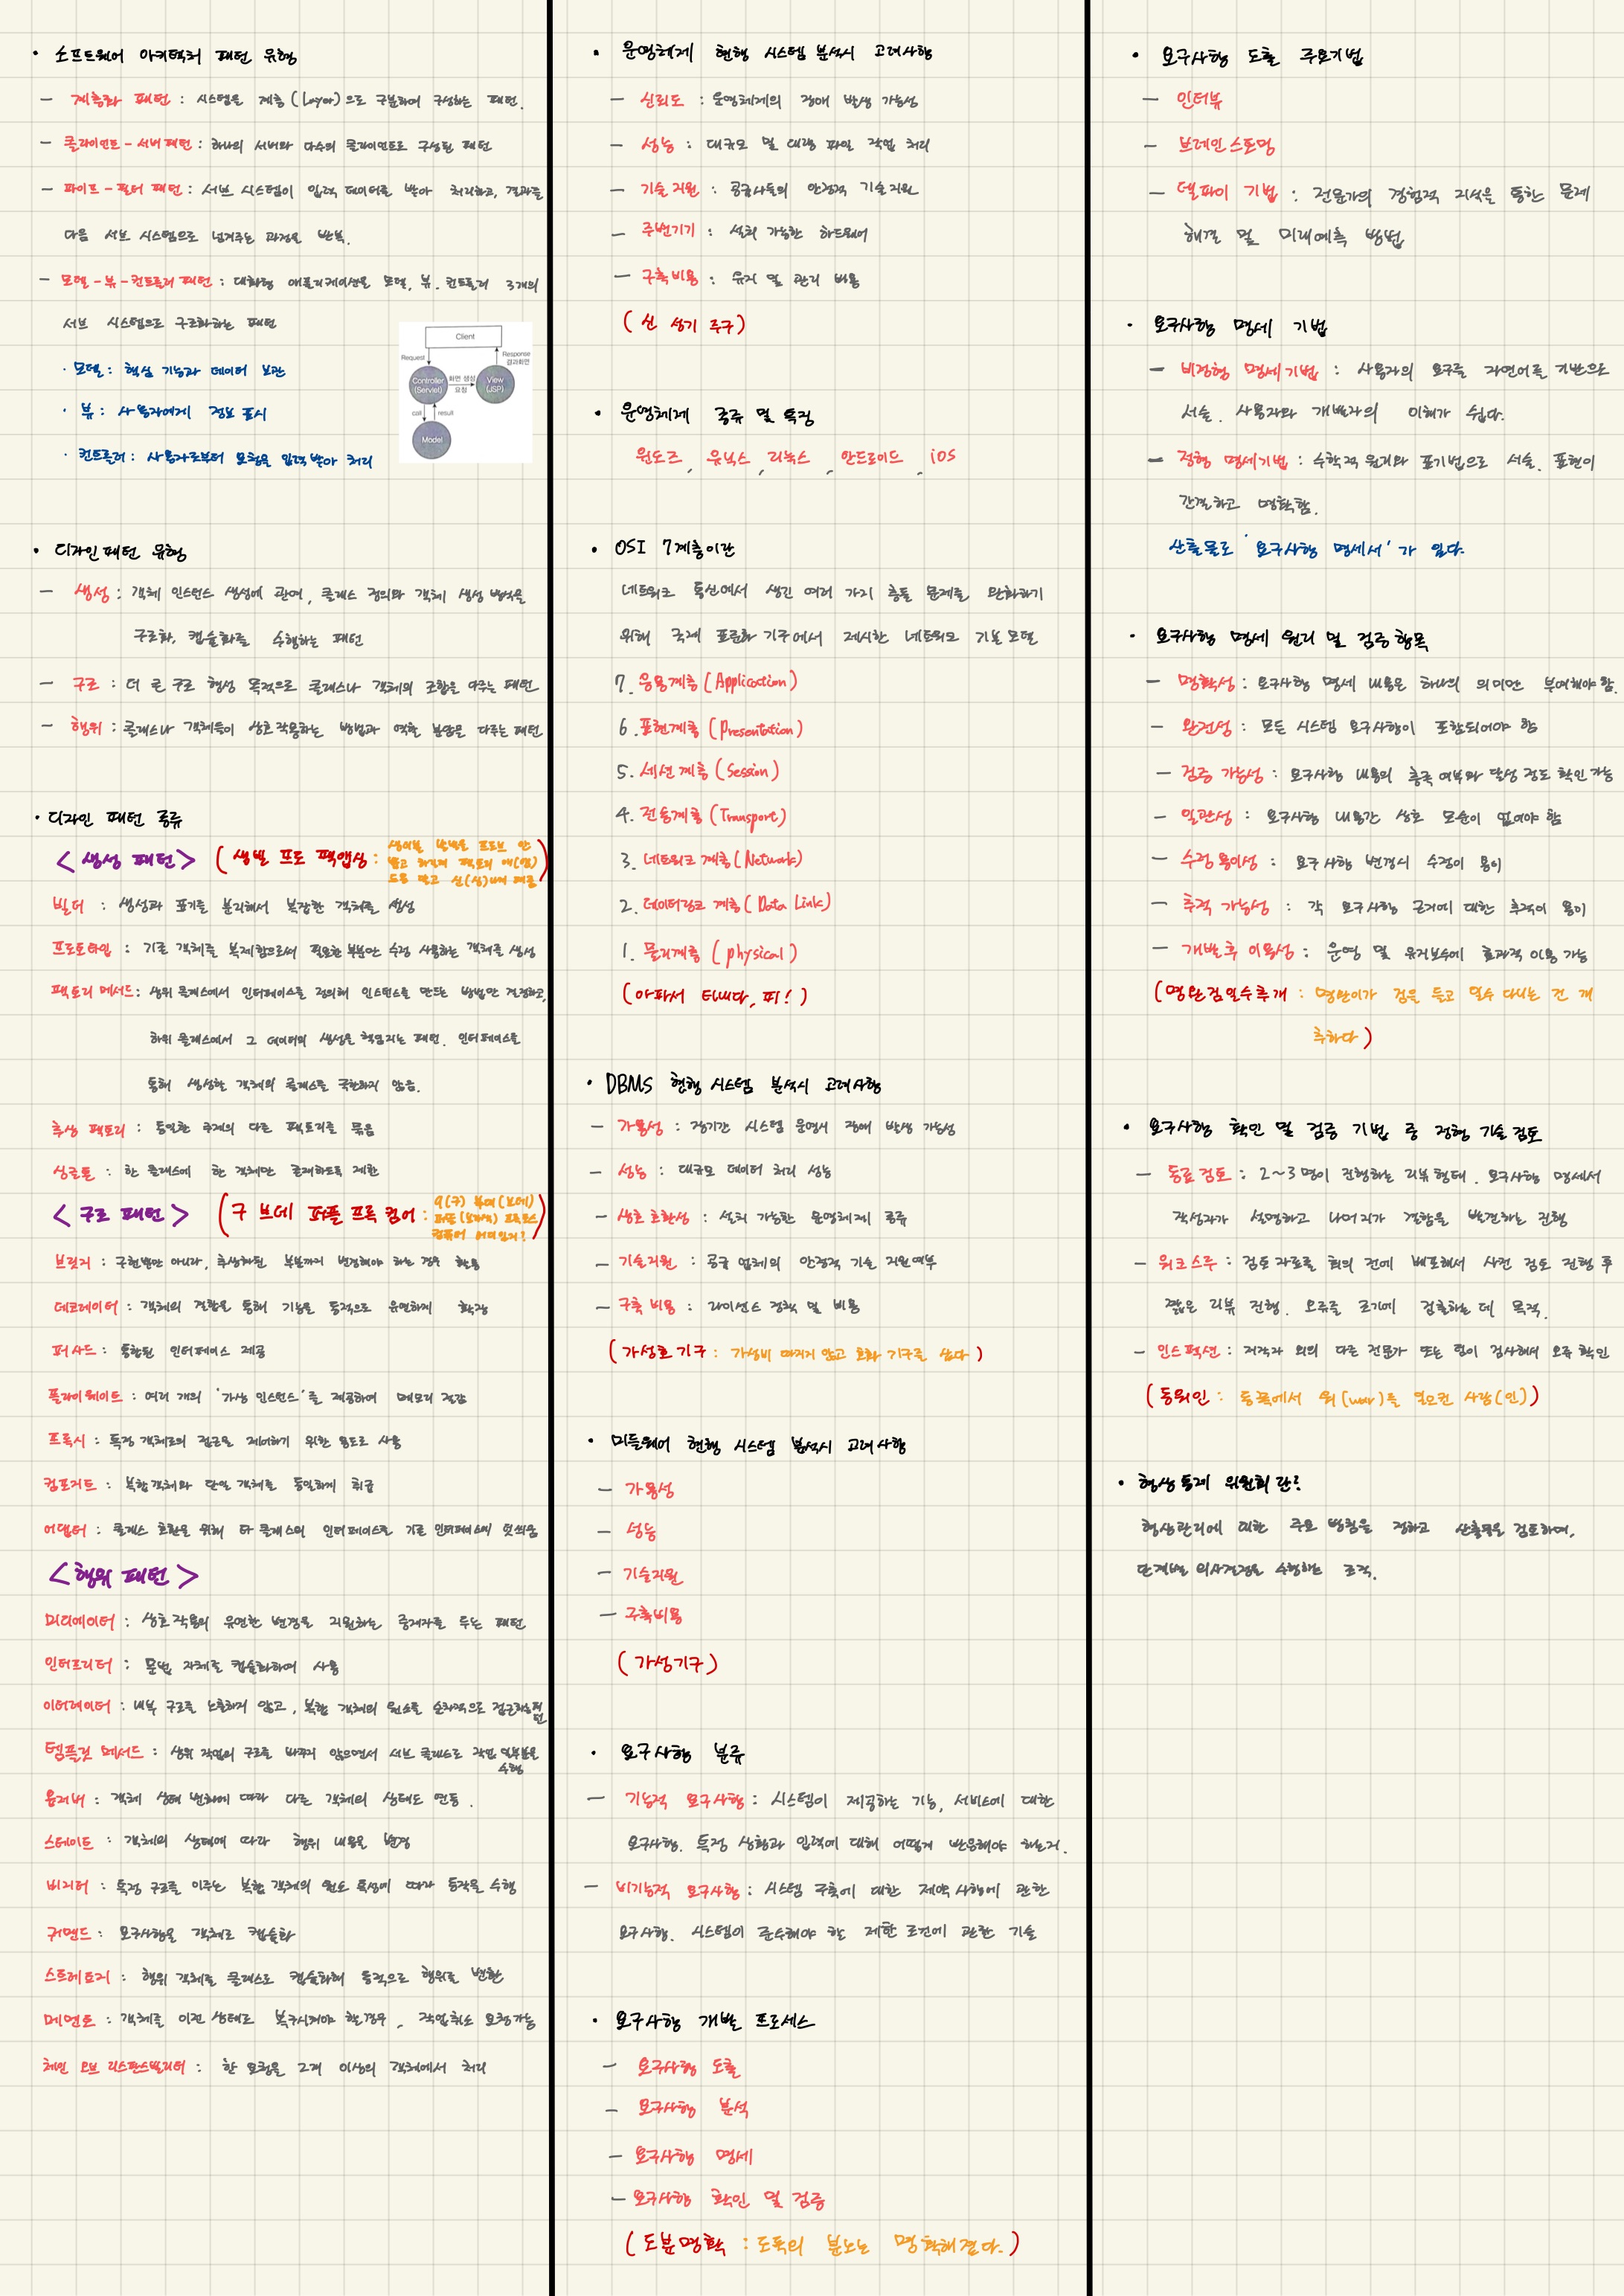 • 소프트웨어 아키텍처 패턴 유형
- 계층화 패턴 : 시스템을 계층 (Layer) 으로 구분하여 구성하는 패턴.
- 클라이언트 - 서버 패턴 : 하나의 서버와 다수의 클라이언트로 구성된 패턴
- 파이프 - 필터 패턴 : 서브 시스템이 입력 데이터를 받아 처리하고, 결과를
다음 서브 시스템으로 넘겨주는 과정을 반복.
- 모델 - 뷰 - 컨트롤러 패턴 : 대화형 애플리케이션을 모델, 뷰, 컨트롤러 3개의
서브 시스템으로 구조화하는 패턴
· 모델 : 핵심 기능과 데이터 보관
· 뷰 : 사용자에게 정보 표시
· 컨트롤러 : 사용자로부터 요청을 입력 받아 처리
Client
Request
Response
결과화면
Controller
(Servlet)
화면 생성
요청
View
(JSP)
call
result
Model
• 디자인 패턴 유형
- 생성 : 객체 인스턴스 생성에 관여, 클래스 정의와 객체 생성 방식을
구조화, 캡슐화를 수행하는 패턴
- 구조 : 더 큰 구조 형성 목적으로 클래스나 객체의 조합을 다루는 패턴
- 행위 : 클래스나 객체들이 상호작용하는 방법과 역할 분담을 다루는 패턴
• 디자인 패턴 종류
< 생성 패턴 > ( 생빌 프로 팩앱싱 :
빌더 : 생성과 표기를 분리해서 복잡한 객체를 생성
프로토타입 : 기존 객체를 복제함으로써 필요한 부분만 수정 사용하는 객체를 생성
팩토리 메서드 : 상위 클래스에서 인터페이스를 정의해 인스턴스를 만드는 방법만 결정하고,
하위 클래스에서 그 데이터의 생성을 책임지는 패턴. 인터페이스를
통해 생성할 객체의 클래스를 국한하지 않음.
추상 팩토리 : 동일한 주제의 다른 팩토리를 묶음
싱글톤 : 한 클래스에 한 객체만 존재하도록 제한
< 구조 패턴 > ( 구 브데 퍼플 프록 컴어 :
브릿지 : 구현뿐만 아니라, 추상화된 부분까지 변경해야 하는 경우 활용
데코레이터 : 객체의 결합을 통해 기능을 동적으로 유연하게 확장
퍼사드 : 통합된 인터페이스 제공
플라이웨이트 : 여러 개의 '가상 인스턴스'를 제공하여 메모리 절감
프록시 : 특정 객체로의 접근을 제어하기 위한 용도로 사용
컴포지트 : 복합 객체와 단일 객체를 동일하게 취급
어댑터 : 클래스 호환을 위해 타 클래스의 인터페이스를 기존 인터페이스에 덧씌움
< 행위 패턴 >
미디에이터 : 상호작용의 유연한 변경을 지원하는 중재자를 두는 패턴
인터프리터 : 문법 자체를 캡슐화하여 사용
이터레이터 : 내부 구조를 노출하지 않고, 복합 객체의 원소를 순차적으로 접근하는 패턴
템플릿 메서드 : 상위 작업의 구조를 바꾸지 않으면서 서브 클래스로 작업 일부분을
수행
옵저버 : 객체 상태 변화에 따라 다른 객체의 상태도 연동.
스테이트 : 객체의 상태에 따라 행위 내용을 변경
비지터 : 특정 구조를 이루는 복합 객체의 원소 특성에 따라 동작을 수행
커맨드 : 요구사항을 객체로 캡슐화
스트레토지 : 행위 객체를 클래스로 캡슐화해 동적으로 행위를 변환
메멘토 : 객체를 이전 상태로 복구시켜야 할 경우, 작업취소 요청가능
체인 오브 리스판스빌리티 : 한 요청을 2개 이상의 객체에서 처리
• 운영체제 현행 시스템 분석시 고려사항
- 신뢰도 : 운영체제의 장애 발생 가능성
- 성능 : 대규모 및 대량 파일 작업 처리
- 기술 지원 : 공급사들의 안정적 기술지원
- 주변기기 : 설치 가능한 하드웨어
- 구축비용 : 유지 및 관리 비용
( 신 성기 주구 )
• 운영체제 종류 및 특징
윈도즈, 유닉스, 리눅스, 안드로이드, iOS
• OSI 7계층이란
네트워크 통신에서 생긴 여러 가지 충돌 문제를 완화하기
위해 국제 표준화 기구에서 제시한 네트워크 기본 모델
7. 응용계층 ( Application )
6. 표현계층 ( Presentation )
5. 세션 계층 ( Session )
4. 전송계층 ( Transport )
3. 네트워크 계층 ( Network )
2. 데이터링크 계층 ( Data Link )
1. 물리계층 ( physical )
( 아파서 티내다, 피! )
• DBMS 현행 시스템 분석시 고려사항
- 가용성 : 장기간 시스템 운영시 장애 발생 가능성
- 성능 : 대규모 데이터 처리 성능
- 상호 호환성 : 설치 가능한 운영체제 종류
- 기술지원 : 공급 업체의 안정적 기술 지원 여부
- 구축 비용 : 라이선스 정책 및 비용
( 가성호기구 : 가성비 따지지 않고 호화 기구를 샀다 )
• 미들웨어 현행 시스템 분석시 고려사항
- 가용성
- 성능
- 기술지원
- 구축비용
( 가성기구 )
• 요구사항 분류
- 기능적 요구사항 : 시스템이 제공하는 기능, 서비스에 대한
요구사항. 특정 상황과 입력에 대해 어떻게 반응해야 하는지.
- 비기능적 요구사항 : 시스템 구축에 대한 제약 사항에 관한
요구사항. 시스템이 준수해야 할 제한 조건에 관한 기술
• 요구사항 개발 프로세스
- 요구사항 도출
- 요구사항 분석
- 요구사항 명세
- 요구사항 확인 및 검증
( 도분명확 : 도둑의 분노는 명확해졌다. )
• 요구사항 도출 주요기법
- 인터뷰
- 브레인스토밍
- 델파이 기법 : 전문가의 경험적 지식을 통한 문제
해결 및 미래예측 방법
• 요구사항 명세 기법
- 비정형 명세기법 : 사용자의 요구를 자연어를 기반으로
서술. 사용자와 개발자의 이해가 쉽다.
- 정형 명세기법 : 수학적 원리와 표기법으로 서술. 표현이
간결하고 명확함.
산출물로 '요구사항 명세서'가 있다.
• 요구사항 명세 원리 및 검증항목
- 명확성 : 요구사항 명세 내용은 하나의 의미만 부여해야 함.
- 완전성 : 모든 시스템 요구사항이 포함되어야 함
- 검증 가능성 : 요구사항 내용의 충족 여부와 달성 정도 확인 가능
- 일관성 : 요구사항 내용간 상호 모순이 없어야 함
- 수정 용이성 : 요구사항 변경시 수정이 용이
- 추적 가능성 : 각 요구사항 근거에 대한 추적이 용이
- 개발 후 이용성 : 운영 및 유지보수에 효과적 이용 가능
( 명완검일수추개 : 명완이가 검을 들고 일수 다니는 건 개
추하다 )
• 요구사항 확인 및 검증 기법 중 정형 기술검토
- 동료 검토 : 2~3명이 진행하는 리뷰 형태. 요구사항 명세서
작성자가 설명하고 나머지가 결함을 발견하는 진행
- 워크스루 : 검토 자료를 회의 전에 배포해서 사전 검토 진행 후
짧은 리뷰 진행. 오류를 조기에 검출하는 데 목적.
- 인스펙션 : 저작자 외의 다른 전문가 또는 팀이 검사해서 오류 확인
( 동워인 : 동쪽에서 워(war)를 일으킨 사람(인) )
• 형상통제 위원회란?
형상관리에 대한 주요 방침을 정하고 산출물을 검토하며,
단계별 의사결정을 수행하는 조직.